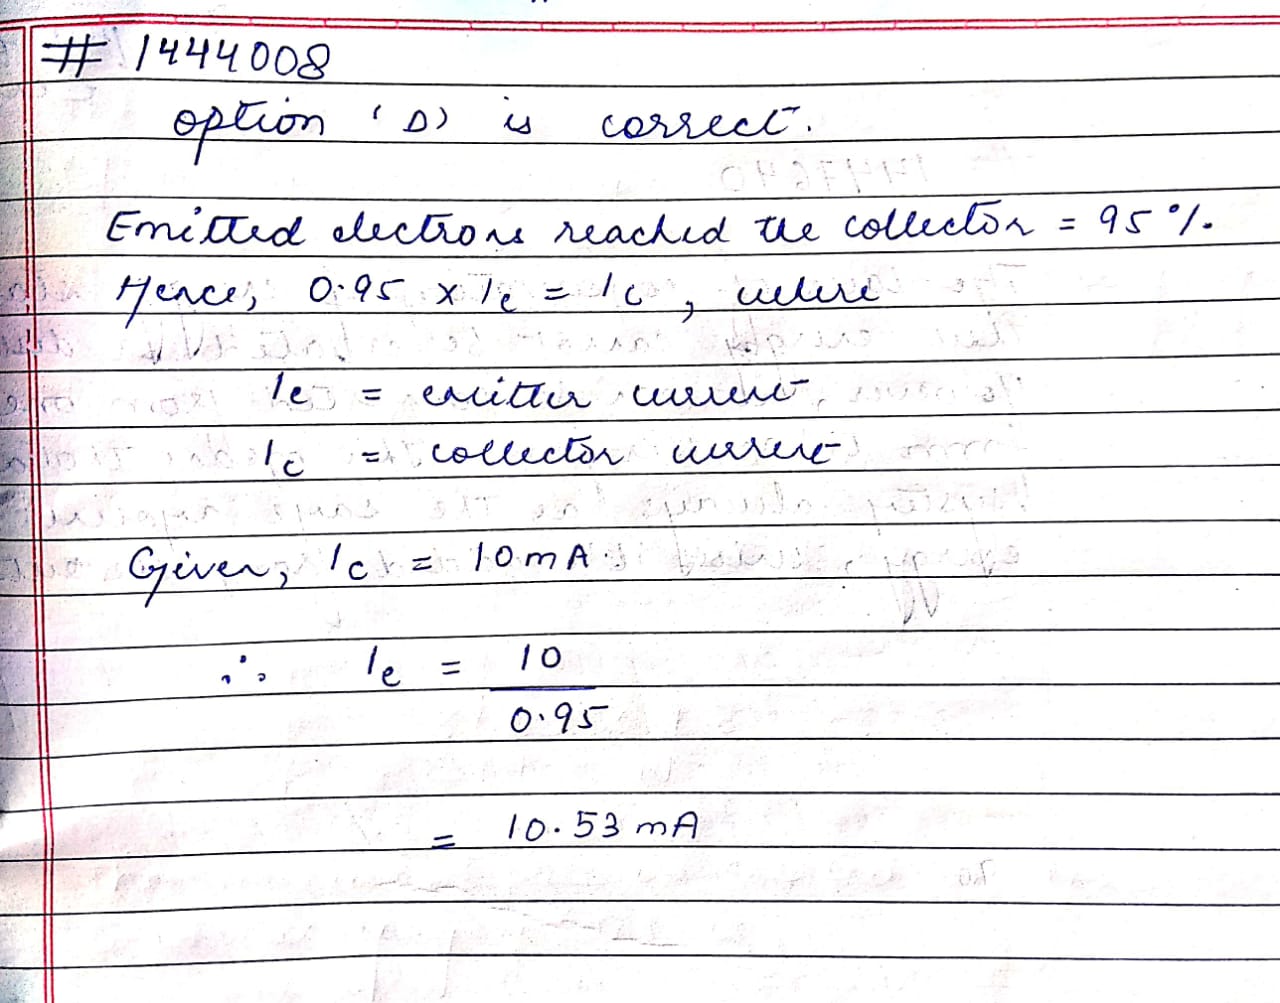 # 1444008
option 'D) is correct.
Emitted electrons reached the collector = 95%.
Hence, 0.95 x Ie = Ic, where
Ie = emitter current
Ic = collector current
Given, Ic = 10mA
∴ Ie = 10
0.95
= 10.53 mA